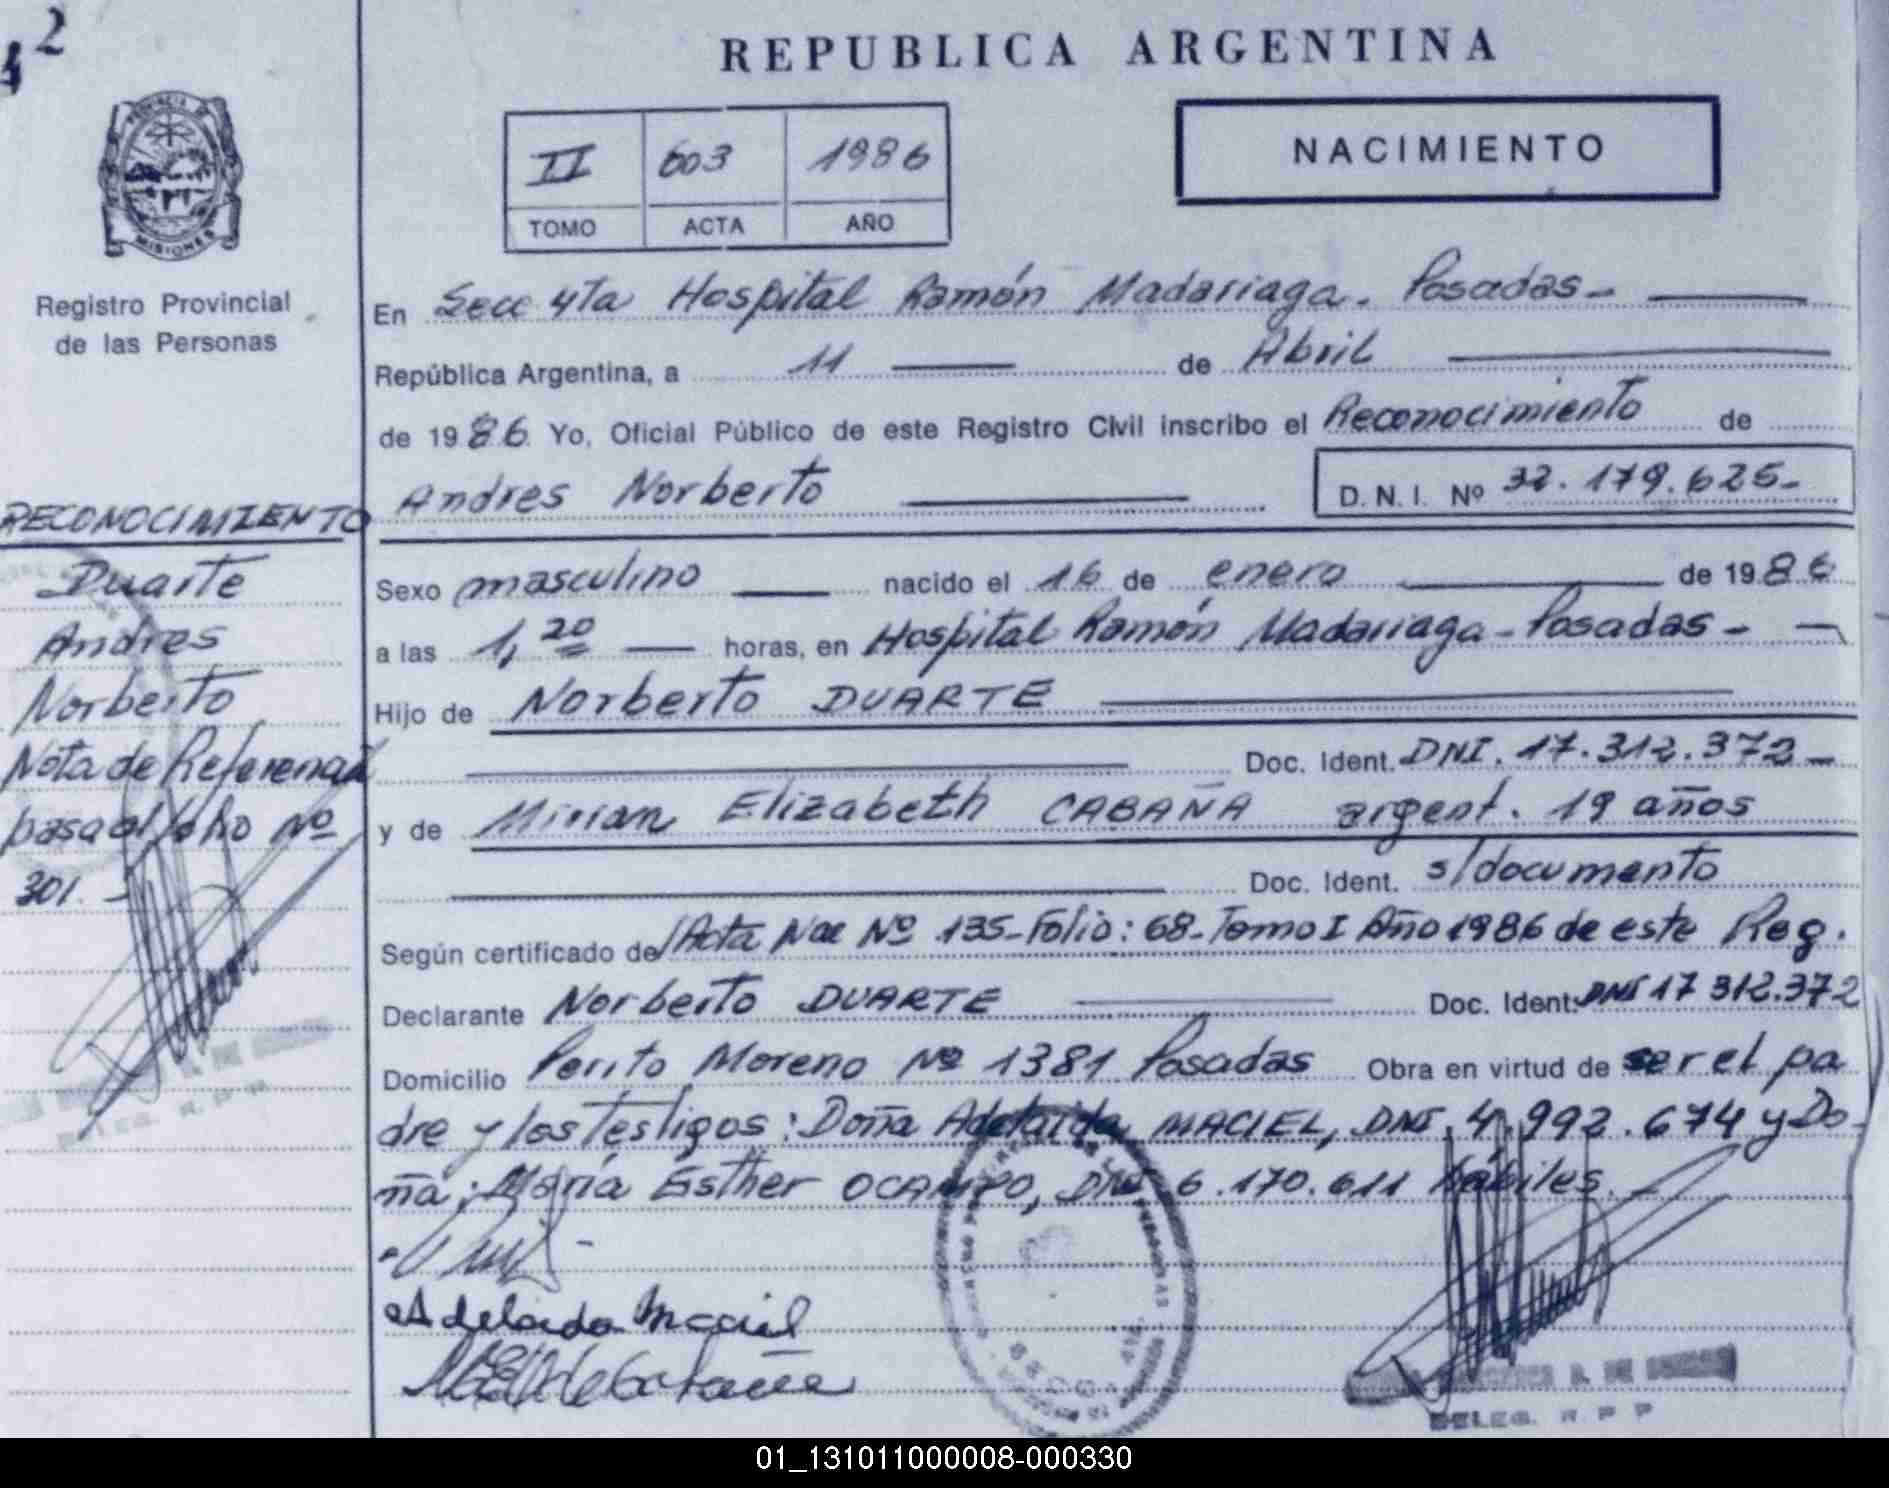 2
REPUBLICA ARGENTINA
PROVINCIA DE
MISIONES
II 603 1986
TOMO ACTA AÑO
NACIMIENTO
Registro Provincial
de las Personas
En Secc 4ta Hospital Ramón Madariaga. Posadas-
República Argentina, a 11 de Abril
de 1986. Yo, Oficial Público de este Registro Civil inscribo el Reconocimiento de
Andres Norberto D. N. I. Nº 32.179.625-
RECONOCIMIENTO
Duarte
Andres
Norberto
Nota de Referencia
pasa al folio Nº
301.-
Sexo masculino nacido el 16 de enero de 1986
a las 1,20 horas, en Hospital Ramón Madariaga-Posadas-
Hijo de Norberto DUARTE
Doc. Ident. DNI. 17.312.372-
y de Mirian Elizabeth CABAÑA argent. 19 años
Doc. Ident. s/documento
Según certificado de Acta Nac Nº 135-Folio: 68-Tomo I Año 1986 de este Reg.
Declarante Norberto DUARTE Doc. Ident. DNI 17 312.372
Domicilio Perito Moreno Nº 1381 Posadas Obra en virtud de ser el pa
dre y los testigos: Doña Adelaida MACIEL, DNI. 4.992.674 y Do-
ña: María Esther OCAMPO, DNI 6.170.611 hábiles.
Adelaida Maciel
DELEG. R. P. P
01_131011000008-000330